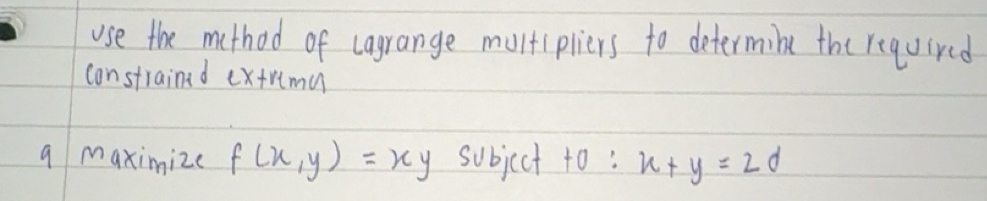 use the method of Lagrange multipliers to determine the required
constrained extrema
a maximize f(x,y) = xy subject to : x + y = 2d